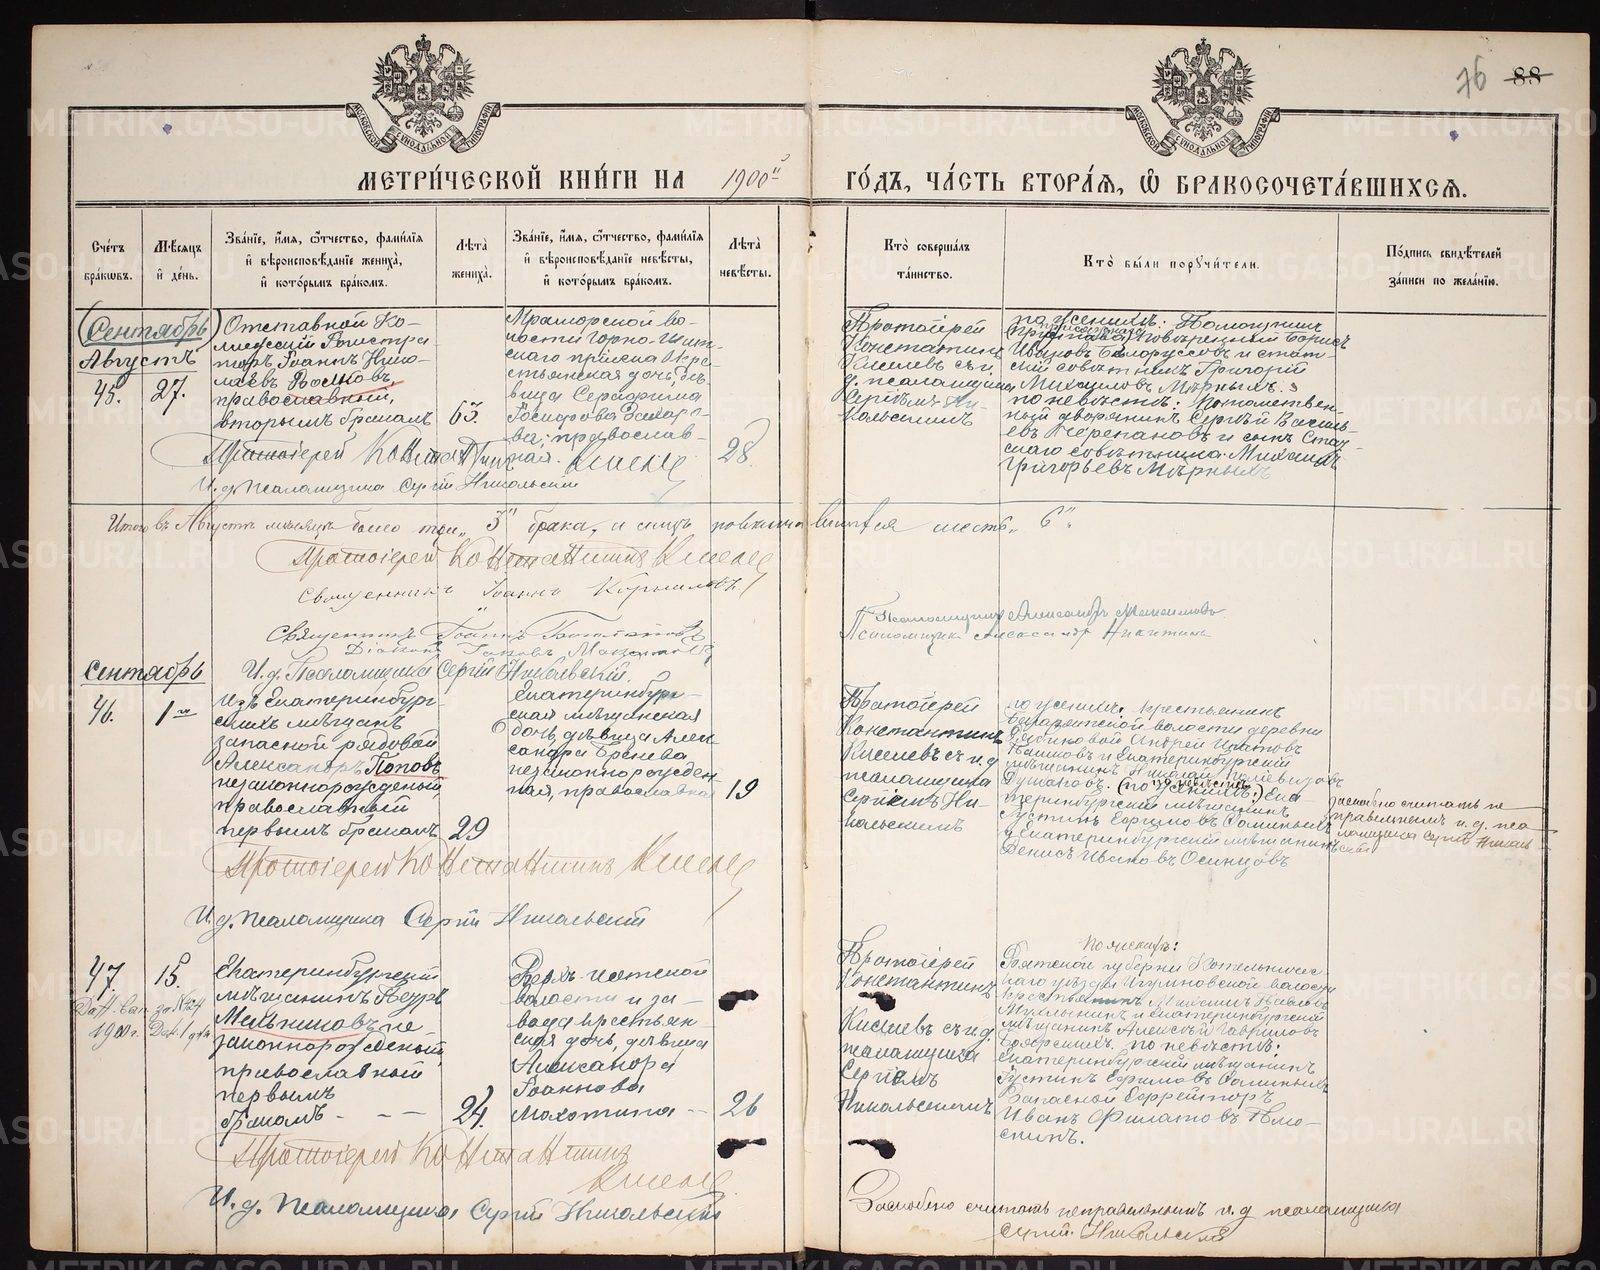 76 88
МОСКОВСКОЙ СИНОДАЛЬНОЙ ТИПОГРАФІИ
МОСКОВСКОЙ СИНОДАЛЬНОЙ ТИПОГРАФІИ
МЕТРИ́ЧЕСКОЙ КНИ́ГИ НА 1900й ГО́ДЪ, ЧА́СТЬ ВТОРА́Ѧ, Ѽ БРАКОСОЧЕТА́ВШИХСѦ.
Сче́тъ бра́кѡвъ.
Мѣ́сяцъ и҆ де́нь.
Зва́нїе, и҆́мѧ, ѻ҆́тчество, фамѵ́лїѧ и҆ вѣроисповѣ́данїе жениха̀, и҆ кото́рымъ бра́комъ.
Лѣ́та жениха̀.
Зва́нїе, и҆́мѧ, ѻ҆́тчество, фамѵ́лїѧ и҆ вѣроисповѣ́данїе невѣ́сты, и҆ кото́рымъ бра́комъ.
Лѣ́та невѣ́сты.
Кто̀ соверша́лъ та́инство.
Кто̀ бы́ли порꙋчи́тели.
По́дпись свидѣ́телей за́писи по жела́нїю.
(Сентябрь)
Августъ
45. 27.
Отставной Ко-
лежскій Регистра-
торъ, Іоаннъ Нико-
лаевъ Волковъ,
православный,
вторымъ бракомъ
63.
Мраморской во-
лости Горно-Щит-
скаго пріиска кре-
стьянская дочь, дѣ-
вица Серафима
православ-
ная.
28
Протоіерей
Константинъ
Киселевъ съ и.
д. псаломщика
Сергіемъ Ни-
кольскимъ
по женихѣ: Помощникъ
Присяжнаго Повѣреннаго Борисъ
Ивановъ Бѣлоруссовъ и стат-
скій совѣтникъ Григорій
Михаиловъ Мѣрныхъ.
по невѣстѣ: Потомствен-
ный дворянинъ Сергѣй Василь-
евъ Черепановъ и сынъ Стат-
скаго совѣтника Михаилъ
Григорьевъ Мѣрныхъ
Протоіерей Константинъ Киселевъ
И. д. псаломщика Сергій Никольскій
Итого въ Августѣ мѣсяцѣ было три „3“ брака, а лицъ повѣнчавшихся шесть „6“.
Протоіерей Константинъ Киселевъ
Священникъ Іоаннъ Корниловъ
Священникъ Іоаннъ
Діаконъ
И. д. Псаломщика Сергій Никольскій.
Псаломщикъ Александръ Максимовъ
Псаломщикъ Александръ Никитинъ
Сентябрь
46. 1го
Изъ Екатеринбург-
скихъ мѣщанъ
запасной рядовой
Александръ Поповъ
незаконнорожденный,
православный
первымъ бракомъ
29
Екатеринбург-
ская мѣщанская
дочь, дѣвица Алек-
сандра
незаконнорожден-
ная, православная
19
Протоіерей
Константинъ
Киселевъ съ и. д.
псаломщика
Сергіемъ Ни-
кольскимъ
по женихѣ: крестьянинъ
волости деревни
Андрей Ипатовъ
и Екатеринбургскій
мѣщанинъ Николай
(по женихѣ:) по невѣстѣ Ека-
теринбургскій мѣщанинъ
Іустинъ Ефимовъ Саминыхъ
и Екатеринбургскій мѣщанинъ
Денисъ Ивановъ Осинцовъ
заскобно считать не-
правильнымъ и. д. пса-
ломщика Сергій Николь-
скій
Протоіерей Константинъ Киселевъ
И. д. псаломщика Сергій Никольскій
47. 15.
1900 г.
Екатеринбургскій
мѣщанинъ Ѳедоръ
Мельниковъ не-
законнорожденный,
православный
первымъ
бракомъ - - -
24.
Верхъ-Исетской
волости и за-
вода крестьян-
ская дочь, дѣвица
Александра
Іоаннова
Махотина -
26
Протоіерей
Константинъ
Киселевъ съ и. д.
псаломщика
Сергіемъ
Никольскимъ
по женихѣ:
Вятской губерніи Котельнич-
скаго уѣзда Игумновской волости
крестьянинъ Михаилъ Павловъ
и Екатеринбургскій
мѣщанинъ Алексѣй Гавриловъ
Боярскихъ. по невѣстѣ:
Екатеринбургскій мѣщанинъ
Іустинъ Ефимовъ Саминыхъ
Запасной Ефрейторъ
Иванъ Филатовъ
Протоіерей Константинъ
Киселевъ
И. д. псаломщика Сергій Никольскій
Заскобно считать неправильнымъ и. д. псаломщика
Сергій Никольскій
METRIKI.GASO-URAL.RU